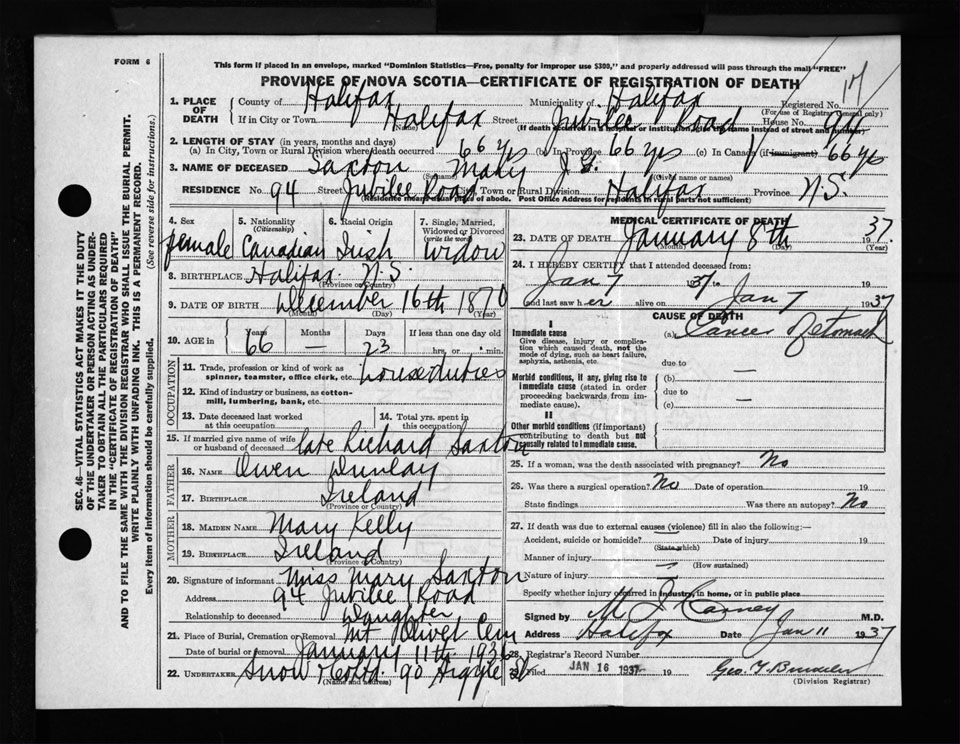 FORM 6
This form if placed in an envelope, marked "Dominion Statistics—Free, penalty for improper use $300," and properly addressed will pass through the mail "FREE"
PROVINCE OF NOVA SCOTIA—CERTIFICATE OF REGISTRATION OF DEATH
17
1. PLACE OF DEATH County of Halifax Municipality of Halifax Registered No.
(For use of Registrar General only)
If in City or Town Halifax Street Jubilee Road House No. 94
(Name) (If death occurred in a hospital or institution, give the name instead of street and number)
2. LENGTH OF STAY (in years, months and days)
(a) In City, Town or Rural Division where death occurred 66 yrs (b) In Province 66 yrs (c) In Canada (if immigrant) 66 yrs
3. NAME OF DECEASED Saxton Mary J.
(Surname) (Given name or names)
RESIDENCE No. 94 Street Jubilee Road City, Town or Rural Division Halifax Province N.S.
(Residence means usual place of abode. Post Office Address for residents in rural parts not sufficient)
4. Sex female
5. Nationality (Citizenship) Canadian
6. Racial Origin Irish
7. Single, Married, Widowed or Divorced (write the word) Widow
8. BIRTHPLACE Halifax. N.S.
(Province or Country)
9. DATE OF BIRTH December 16th 1870
(Month) (Day) (Year)
10. AGE in Years 66 Months — Days 23 If less than one day old hrs. or min.
OCCUPATION
11. Trade, profession or kind of work as spinner, teamster, office clerk, etc. house duties
12. Kind of industry or business, as cotton-mill, lumbering, bank, etc.
13. Date deceased last worked at this occupation
14. Total yrs. spent in this occupation
15. If married give name of wife or husband of deceased late Richard Saxton
FATHER
16. NAME Owen Dunlay
17. BIRTHPLACE Ireland
(Province or Country)
MOTHER
18. MAIDEN NAME Mary Kelly
19. BIRTHPLACE Ireland
(Province or Country)
20. Signature of informant Miss Mary Saxton
Address 94 Jubilee Road
Relationship to deceased Daughter
21. Place of Burial, Cremation or Removal Mt Olivet Cem
Date of burial or removal January 11th 1936
22. UNDERTAKER Snow & Co Ltd. 90 Argyle St
(Name and address)
MEDICAL CERTIFICATE OF DEATH
23. DATE OF DEATH January 8th 1937.
(Month) (Day) (Year)
24. I HEREBY CERTIFY that I attended deceased from:
Jan 7 1937 to Jan 7 19
and last saw her alive on Jan 7 1937
CAUSE OF DEATH
I
Immediate cause
Give disease, injury or complication which caused death, not the mode of dying, such as heart failure, asphyxia, asthenia, etc.
(a) Cancer of stomach
due to —
Morbid conditions, if any, giving rise to immediate cause (stated in order proceeding backwards from immediate cause).
(b)
due to —
(c)
II
Other morbid conditions (if important) contributing to death but not causally related to immediate cause.
25. If a woman, was the death associated with pregnancy? No
26. Was there a surgical operation? No Date of operation 19
State findings Was there an autopsy? No
27. If death was due to external causes (violence) fill in also the following:—
Accident, suicide or homicide? — Date of injury 19
(State which)
Manner of injury —
(How sustained)
Nature of injury —
Specify whether injury occurred in industry, in home, or in public place
Signed by M J Carney M.D.
Address Halifax Date Jan 11 1937
28. Registrar's Record Number
29. Filed JAN 16 1937 19
(Division Registrar)
SEC. 46—VITAL STATISTICS ACT MAKES IT THE DUTY
OF THE UNDERTAKER OR PERSON ACTING AS UNDER-
TAKER TO OBTAIN ALL THE PARTICULARS REQUIRED
IN THE "CERTIFICATE OF REGISTRATION OF DEATH"
AND TO FILE THE SAME WITH THE DIVISION REGISTRAR WHO SHALL ISSUE THE BURIAL PERMIT.
WRITE PLAINLY WITH UNFADING INK. THIS IS A PERMANENT RECORD.
Every item of information should be carefully supplied. (See reverse side for instructions.)